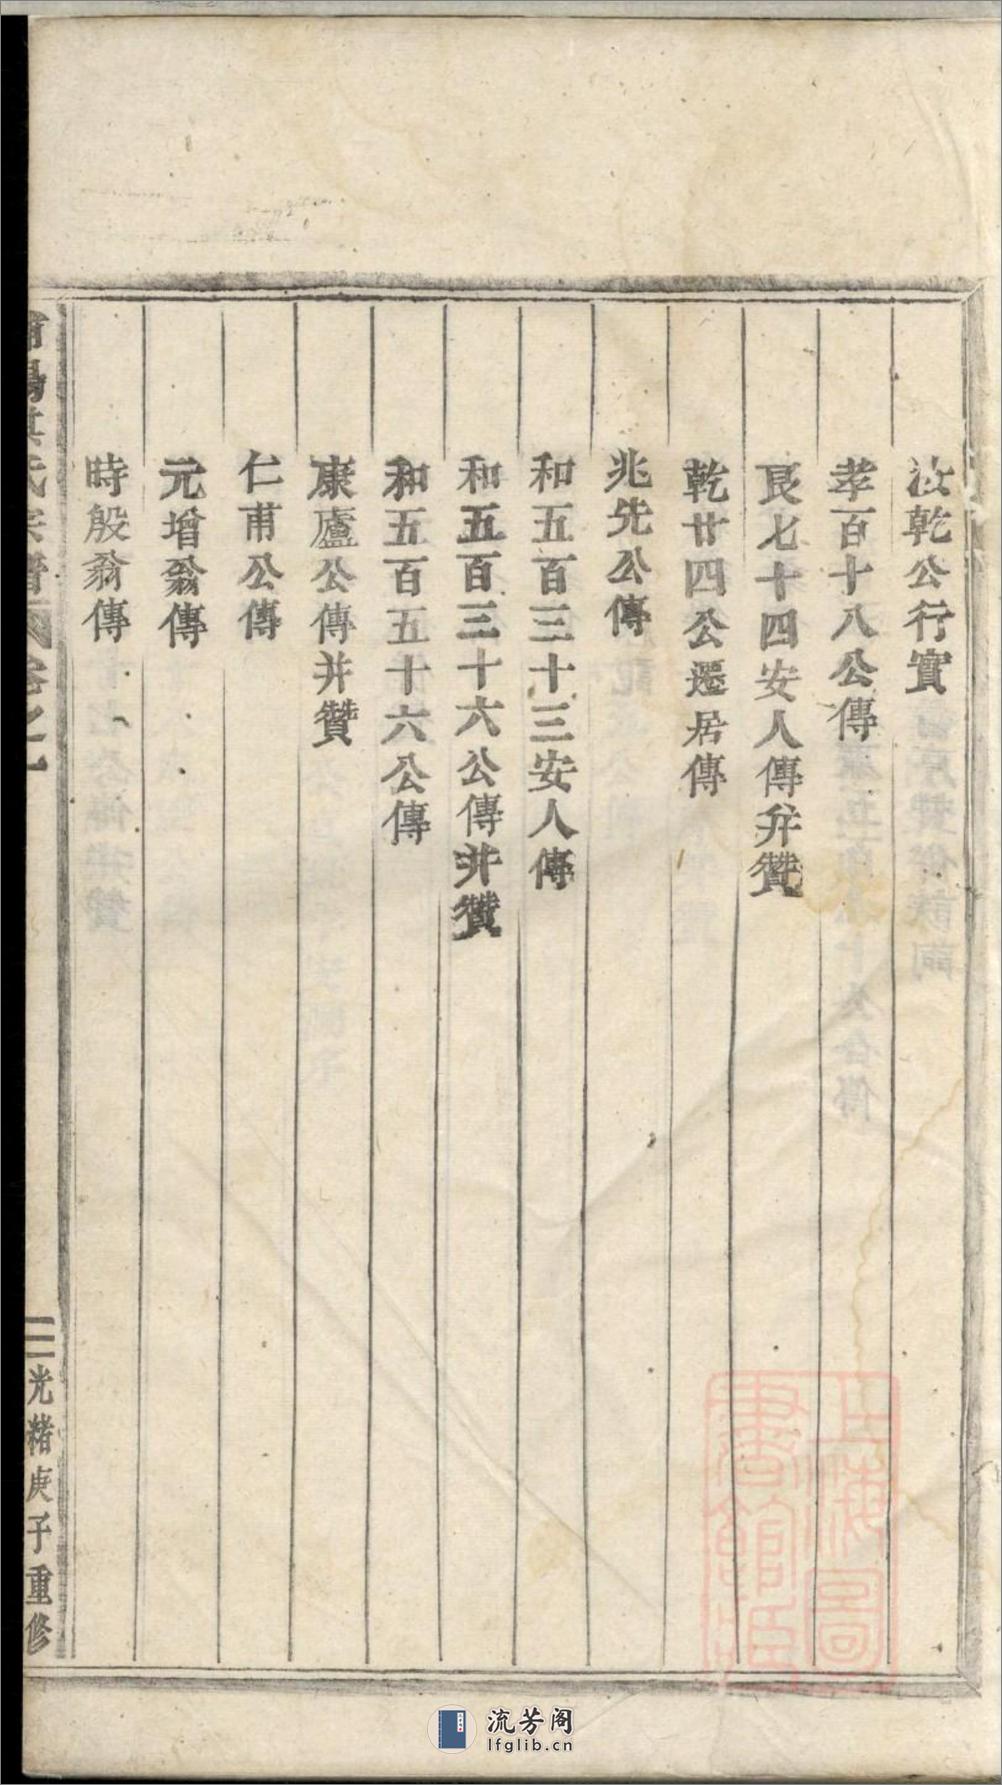 汝乾公行實
孝百十八公傳
艮七十四安人傳并贊
乾廿四公遷居傳
兆先公傳
和五百三十三安人傳
和五百三十六公傳并贊
和五百五十六公傳
康廬公傳并贊
仁甫公傳
元增翁傳
時殷翁傳
氏宗譜 卷之一
二 光緒庚子重修
上海圖書館藏
流芳阁
lfglib.cn